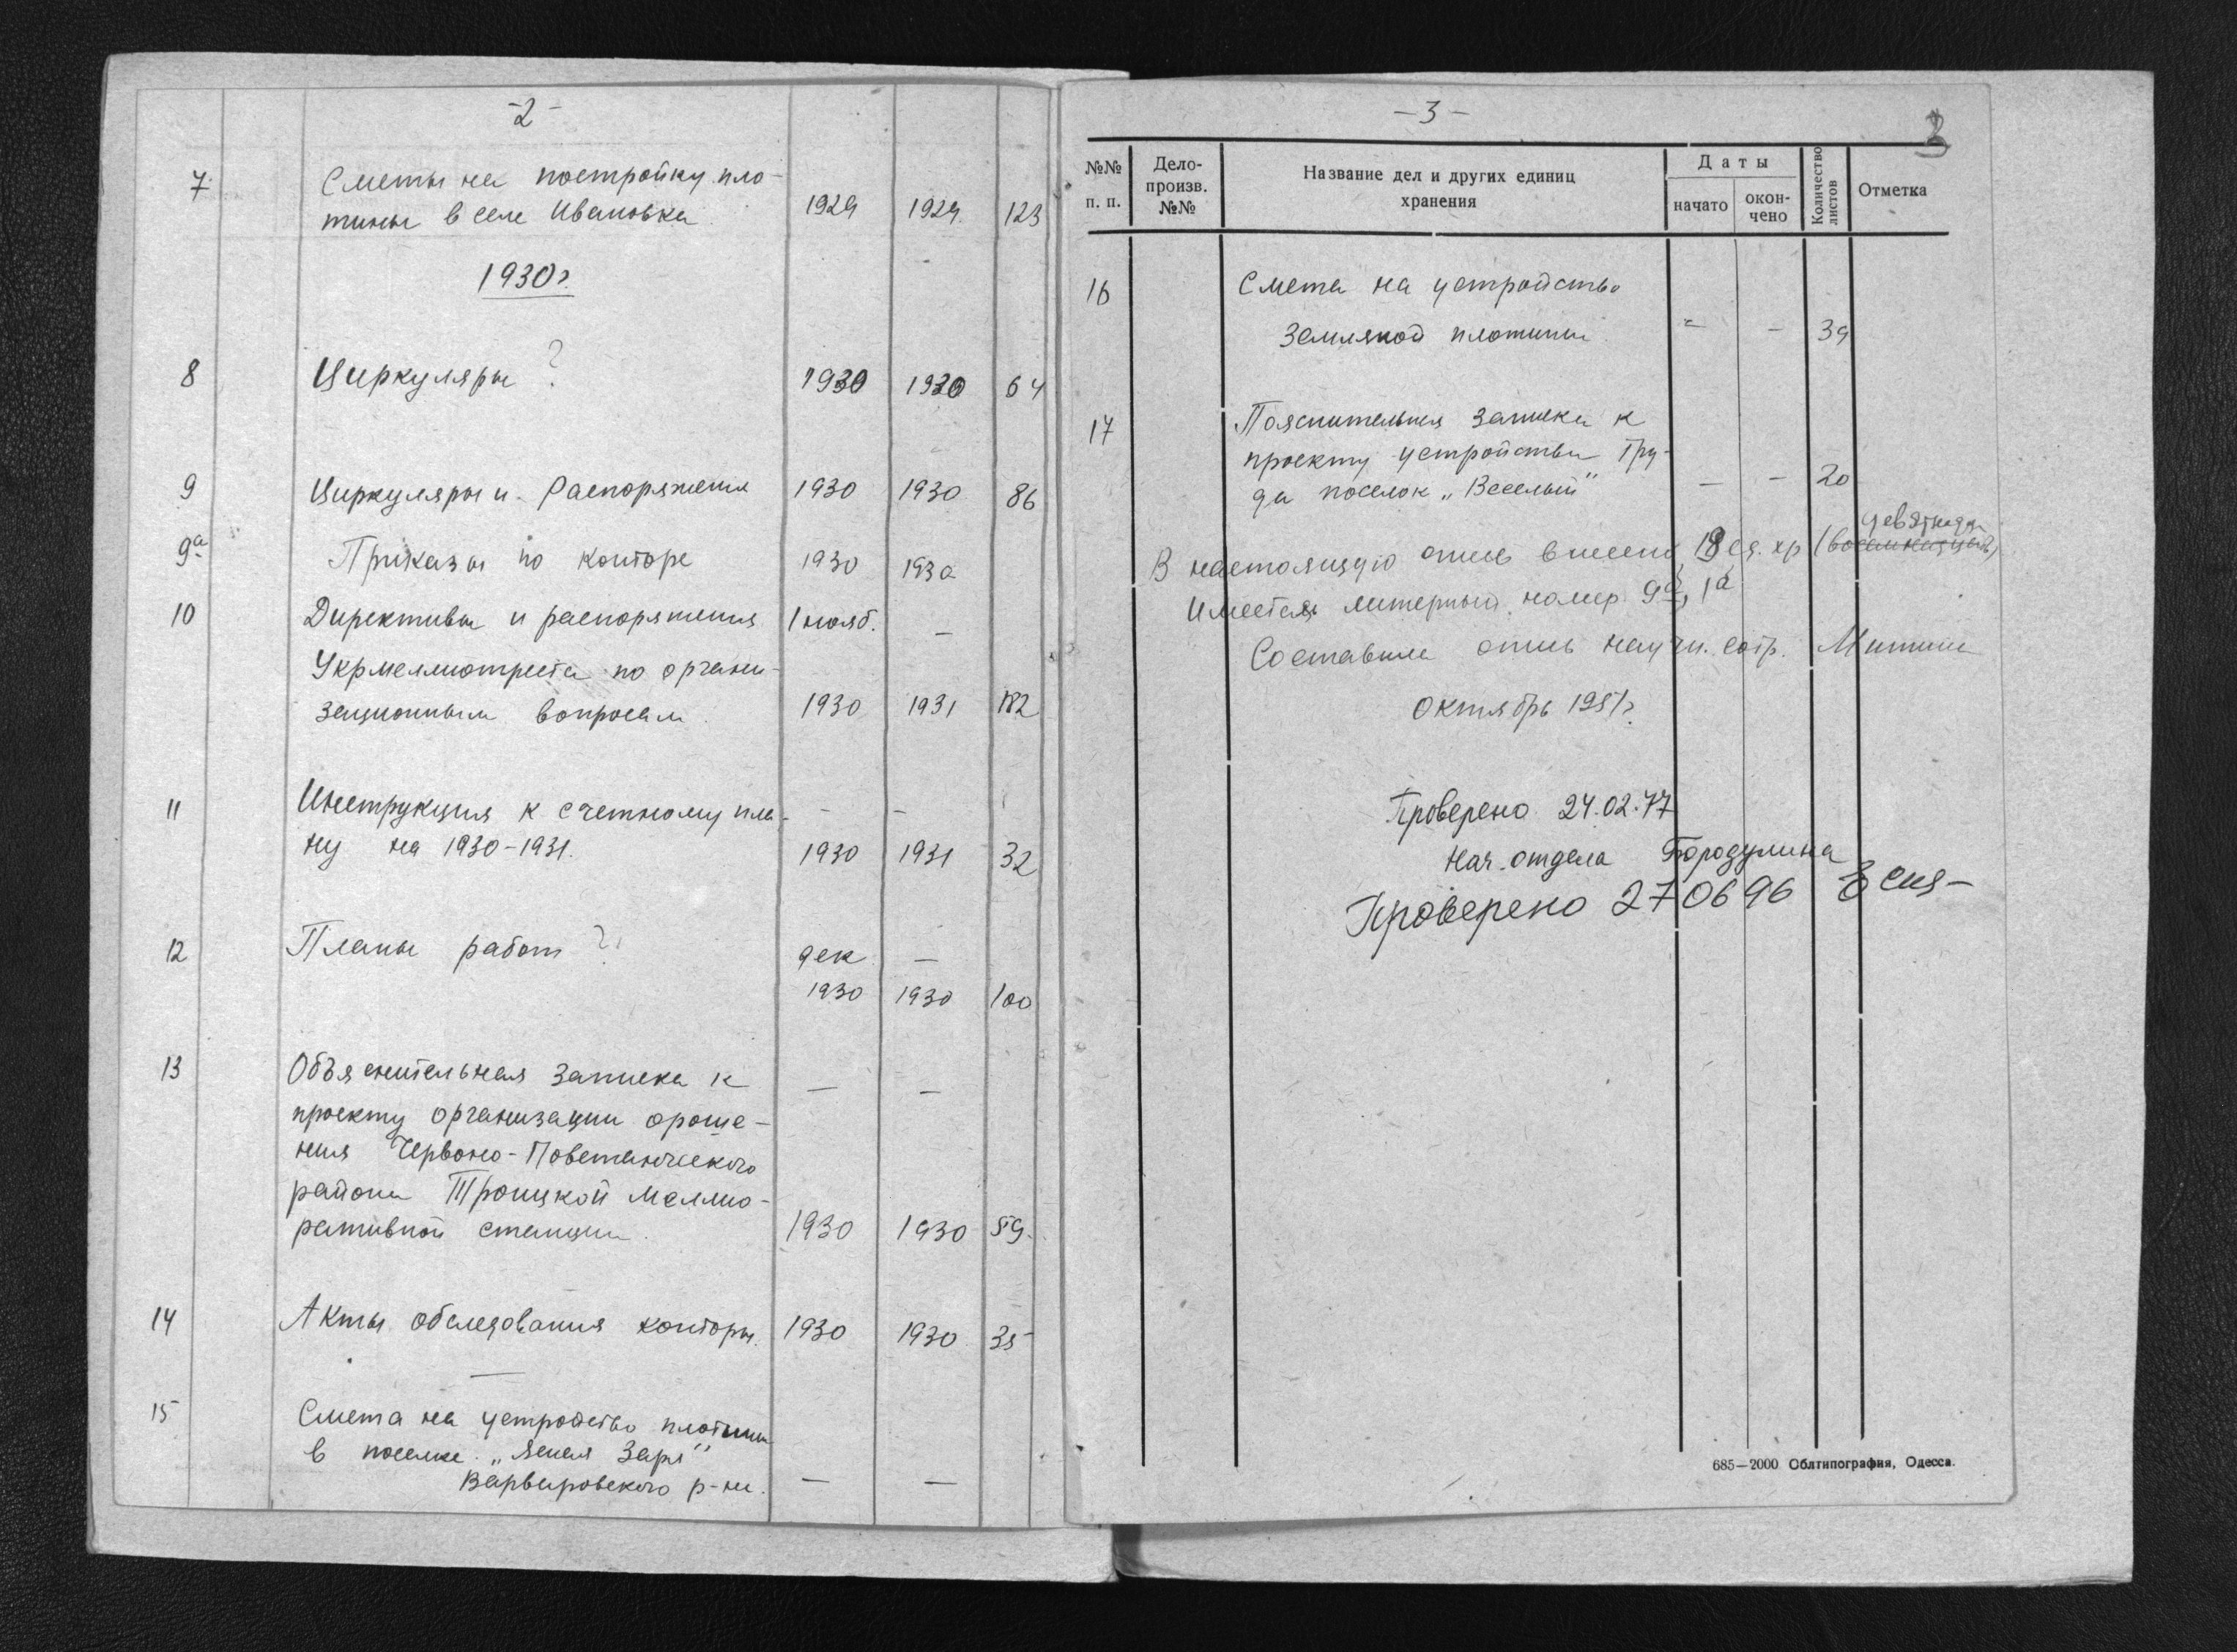 -2-
7 Сметы на постройку пло-
тины в селе Ивановка 1929 1929 123
1930г.
8 Циркуляры ? 1930 1930 64
9 Циркуляры и Распоряжения 1930 1930 86
9а Приказы по конторе 1930 1930
10 Директивы и распоряжения 1 нояб. —
Укрмелиотреста по органи-
зационным вопросам 1930 1931 182
11 Инструкция к счетному пла- — —
ну на 1930-1931. 1930 1931 32
12 Планы работ ? дек —
1930 1930 100
13 Объяснительная записка к — —
проекту организации ороше-
ния Червоно-Повстанческого
района Троицкой Мелио-
ративной станции. 1930 1930 59.
14 Акты обследования конторы. 1930 1930 35
15 Смета на устройство плотины
в поселке „Ясная Заря"
Варваровского р-на. — —
-3-
3
№№ п. п.
Дело-
произв.
№№
Название дел и других единиц
хранения
Даты
начато
окон-
чено
Количество
листов
Отметка
16 Смета на устройство
Земляной плотины — — 39
17 Пояснительная записка к
проекту устройства Пру-
да поселок „Веселый" — — 20
девятнадц
В настоящую опись внесено 18 ед. хр (восемнадцать)
Имеется литерный номер 9а, 1а
Составила опись научн. сотр. Митина
Октябрь 1951г.
Проверено 24.02.77
Нач. отдела Бородулина
Проверено 27 06 96
685—2000 Облтипография, Одесса.